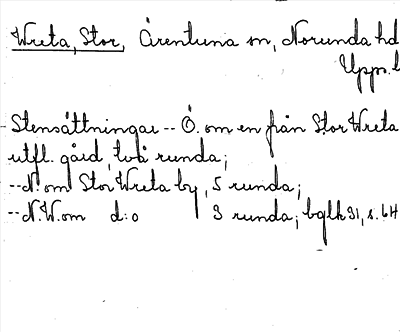 Wreta, Stor, Ärentuna sn, Norunda hd
Upp. l
Stensättningar -- Ö. om en från Stor Wreta
utfl. gård, två runda;
-- N. om Stor Wreta by, 5 runda;
-- N.W. om d:o 3 runda; bglk 31, s. 64